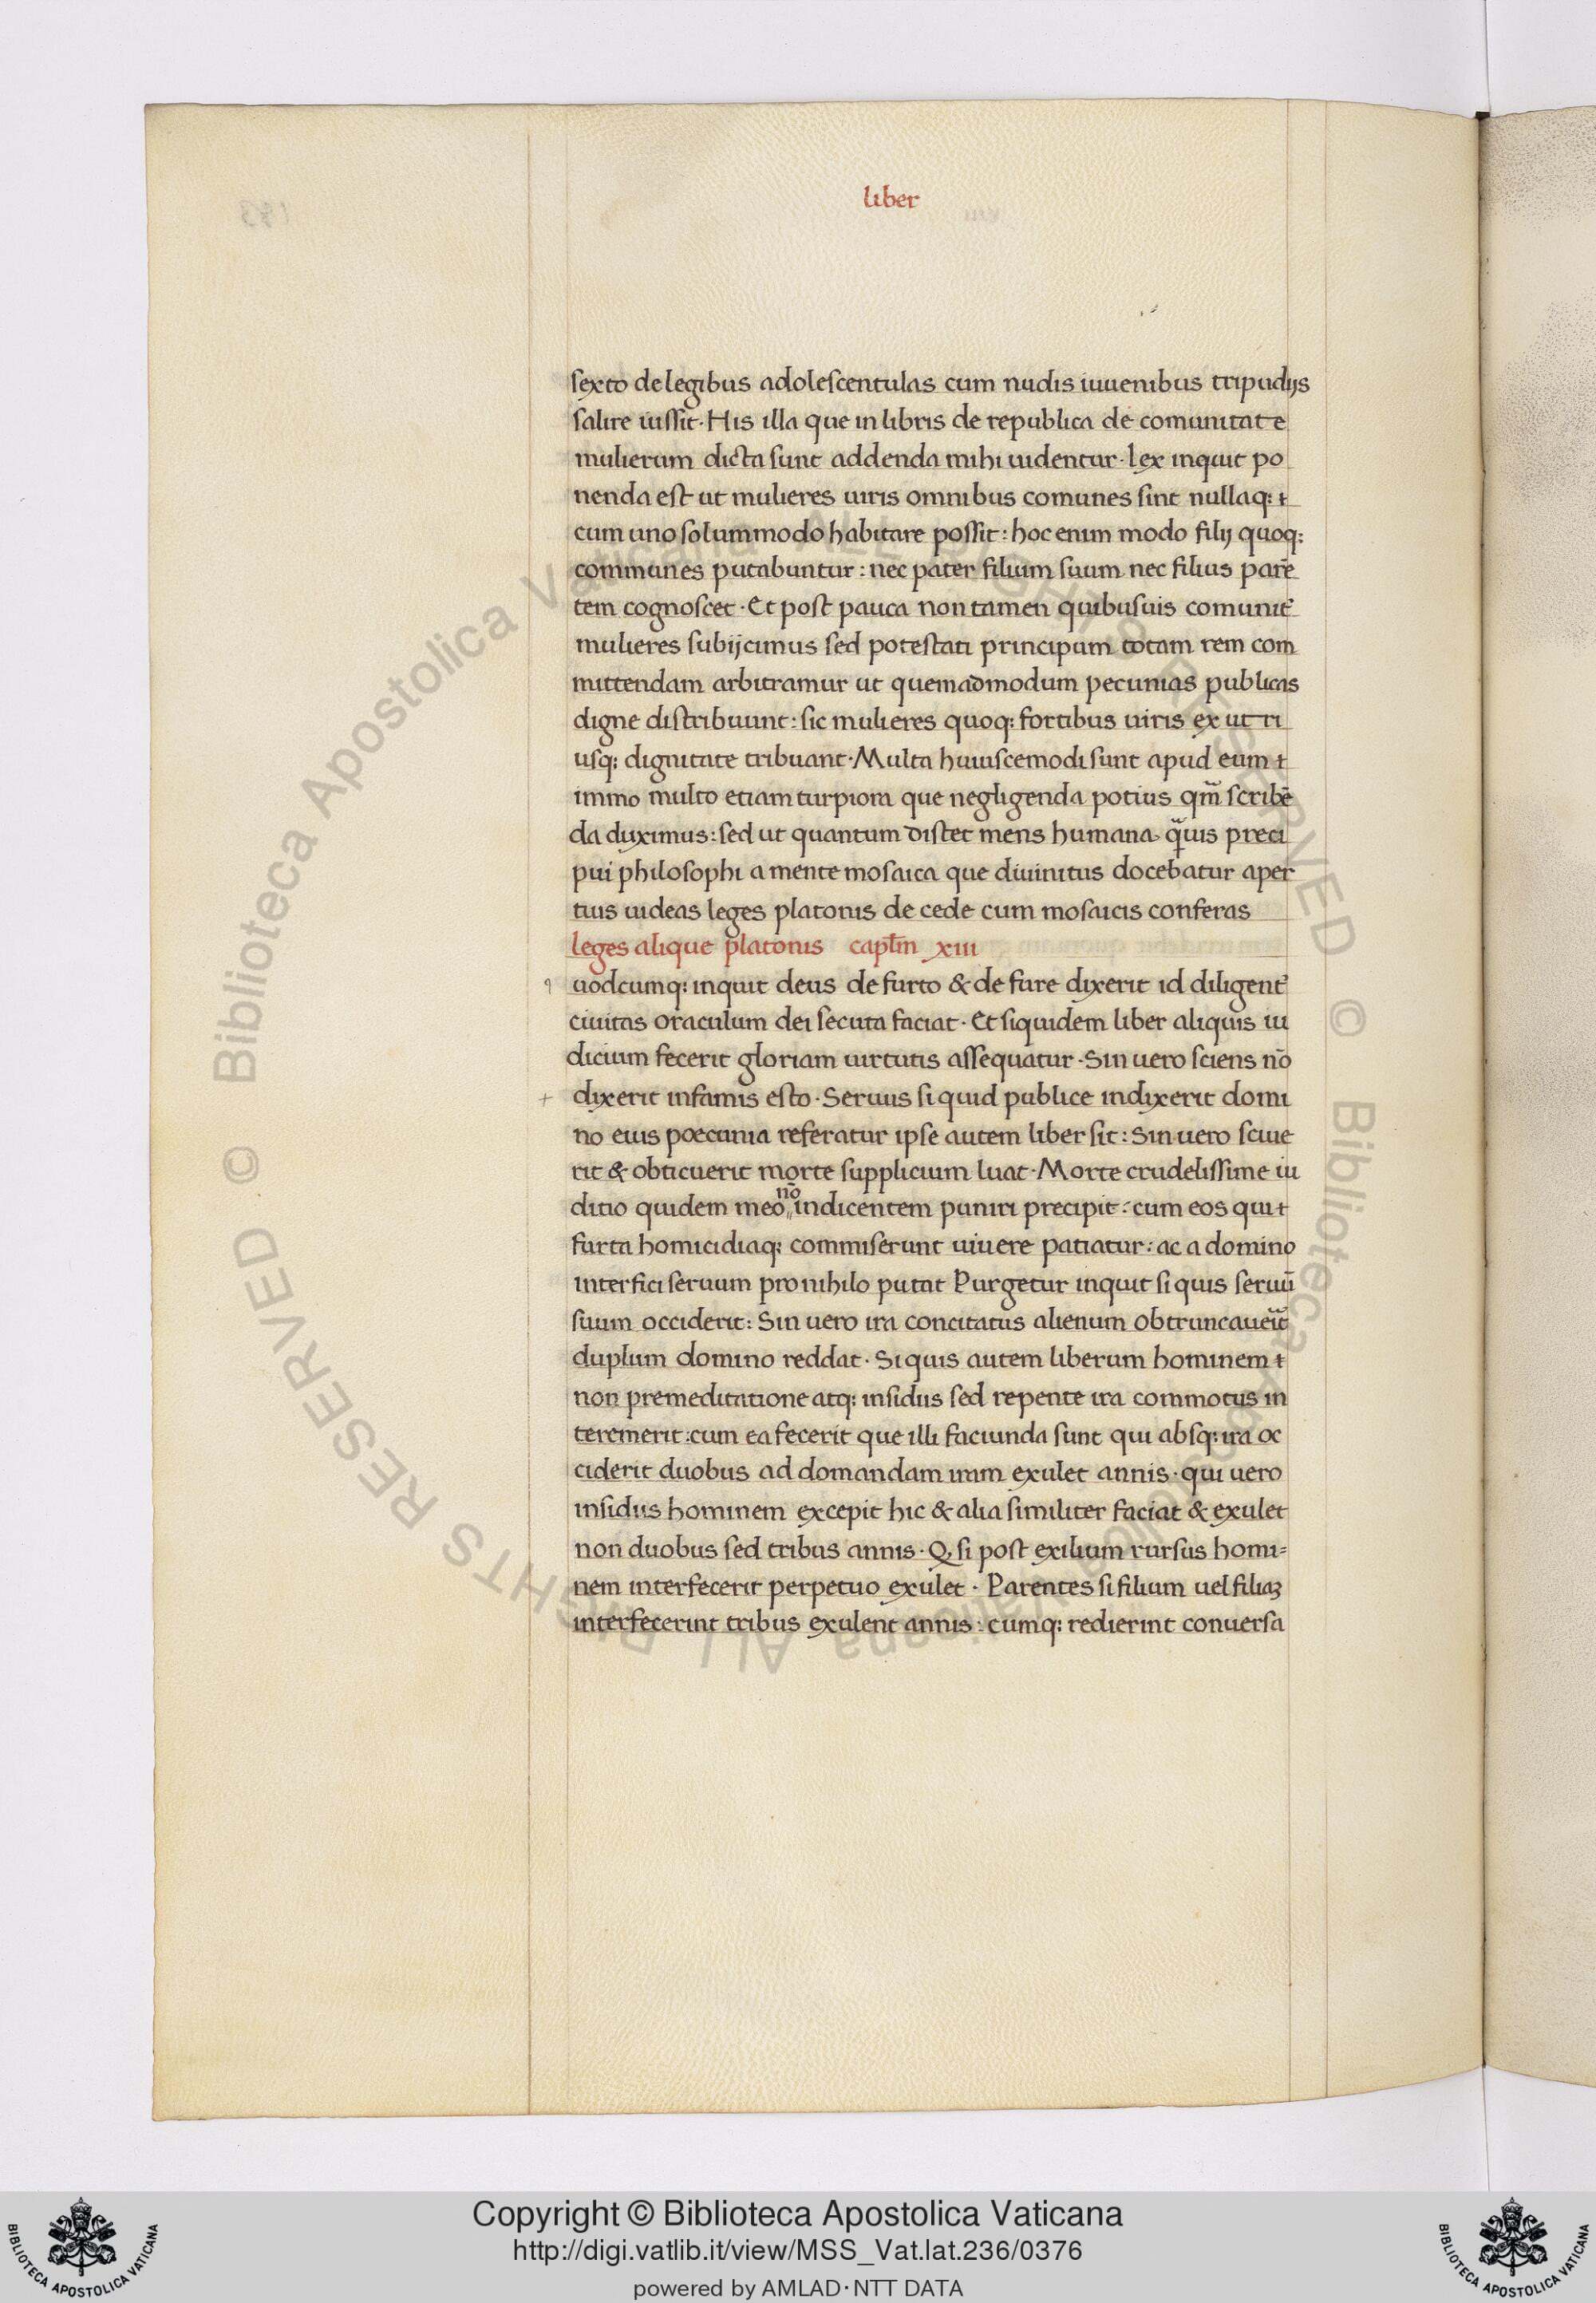 liber
sexto de legibus adolescentulas cum nudis iuuenibus tripudijs
salire iussit · His illa que in libris de republica de comunitate
mulierum dicta sunt addenda mihi uidentur · lex inquit po
nenda est ut mulieres uiris omnibus comunes sint nullaq;
cum uno solummodo habitare possit : hoc enim modo filij quoq;
communes putabuntur : nec pater filium suum nec filius parē
tem cognoscet · Et post pauca non tamen quibusuis comunit᷑
mulieres subijcimus sed potestati principum totam rem com
mittendam arbitramur ut quemadmodum pecunias publicas
digne distribuunt : sic mulieres quoq; fortibus uiris ex utri
usq; dignitate tribuant · Multa huiuscemodi sunt apud eum
immo multo etiam turpiora que negligenda potius qm̄ scribē
da duximus : sed ut quantum distet mens humana q̄uis preci
pui philosophi a mente mosaica que diuinitus docebatur aper
tius uideas leges platonis de cede cum mosaicis conferas
leges alique platonis capl̄m xiii
q uodcumq; inquit deus de furto & de fure dixerit id diligent᷑
ciuitas oraculum dei secuta faciat · Et siquidem liber aliquis iu
dicium fecerit gloriam uirtutis assequatur · Sin uero sciens nō
+ dixerit infamis esto · Seruus si quid publice indixerit domi
no eius poecunia referatur ipse autem liber sit : Sin uero sciue
rit & obticuerit morte supplicium luat · Morte crudelissime iu
ditio quidem meo nō indicentem puniri precipit : cum eos qui
furta homicidiaq; commiserunt uiuere patiatur : ac a domino
interfici seruum pro nihilo putat Purgetur inquit si quis seruū
suum occiderit : Sin uero ira concitatus alienum obtruncaueit̄
duplum domino reddat · Si quis autem liberum hominem
non premeditatione atq; insidiis sed repente ira commotus in
teremerit : cum ea fecerit que illi faciunda sunt qui absq; ira oc
ciderit duobus ad domandam iram exulet annis · qui uero
insidiis hominem excepit hic & alia similiter faciat & exulet
non duobus sed tribus annis · Q, si post exilium rursus homi=
nem interfecerit perpetuo exulet · Parentes si filium uel filiaꝫ
interfecerint tribus exulent annis : cumq; redierint conuersa
Copyright © Biblioteca Apostolica Vaticana
http://digi.vatlib.it/view/MSS_Vat.lat.236/0376
powered by AMLAD·NTT DATA